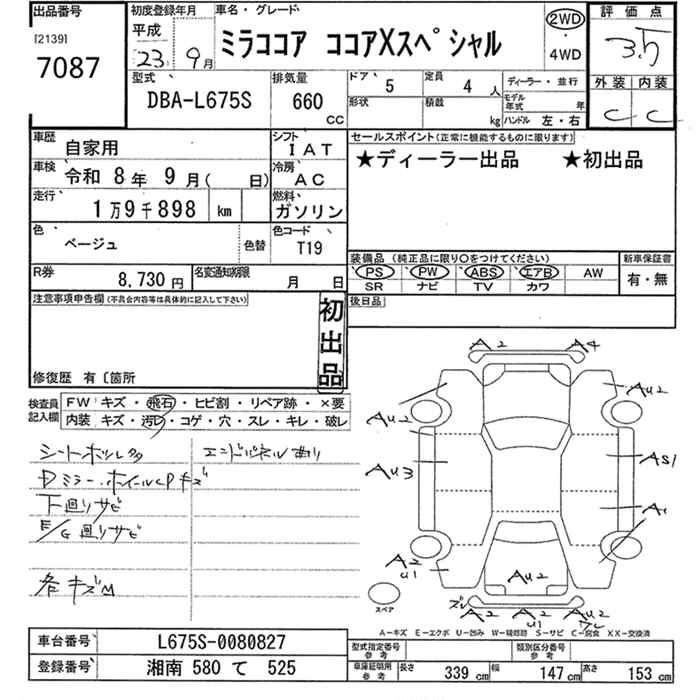 出品番号
[2139]
7087
初度登録年月
平成
23年 9月
車名・グレード
ミラココア ココアXスペシャル
2WD
・
4WD
評価点
3.5
外装 内装
C C
型式
DBA-L675S
排気量
660
CC
ドア 5
定員 4 人
形状
積載 kg
ディーラー・並行
モデル年式 年
ハンドル 左・右
車歴 自家用
車検 令和 8年 9月( 日)
走行 1万9千898 km
シフト IAT
冷房 AC
燃料 ガソリン
色 ベージュ 色替
色コード T19
R券 8,730円
名変通知期限 月 日
セールスポイント(正常に機能するものに限ります)
★ディーラー出品 ★初出品
装備品 (純正品に限り○をつけてください)
PS PW ABS エアB AW
SR ナビ TV カワ
新車保証書
有・無
後日品
注意事項申告欄(不具合内容等は具体的に記入して下さい)
初出品
修復歴 有〔箇所
検査員記入欄
FW キズ・飛石・ヒビ割・リペア跡・×要
内装 キズ・汚レ・コゲ・穴・スレ・キレ・破レ
エンドパネル曲り
Dミラー・ホイルCPキズ
下廻りサビ
E/G廻りサビ
各キズM
A2 A4
AU2 AU2
AU3 AS1
A1
AU1 AU2
ズレ A2 AU1 AU2
スペア
A-キズ E-エクボ U-凹み W-補修跡 S-サビ C-腐食 XX-交換済
車台番号 L675S-0080827
登録番号 湘南 580 て 525
型式指定番号
参考
類別区分番号
参考
車庫証明用
参考
長さ 339 cm 幅 147 cm 高さ 153 cm